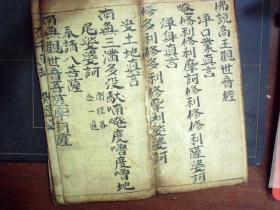 佛說高王觀世音經
淨口業真言
修利修利摩訶修利修修利薩婆訶
淨身真言
修多利修多利修摩利薩婆訶
安土地真言
南無三滿多沒馱喃唵度嚕度嚕地
尾娑婆訶
奉請八菩薩
南無觀世音菩薩摩訶薩